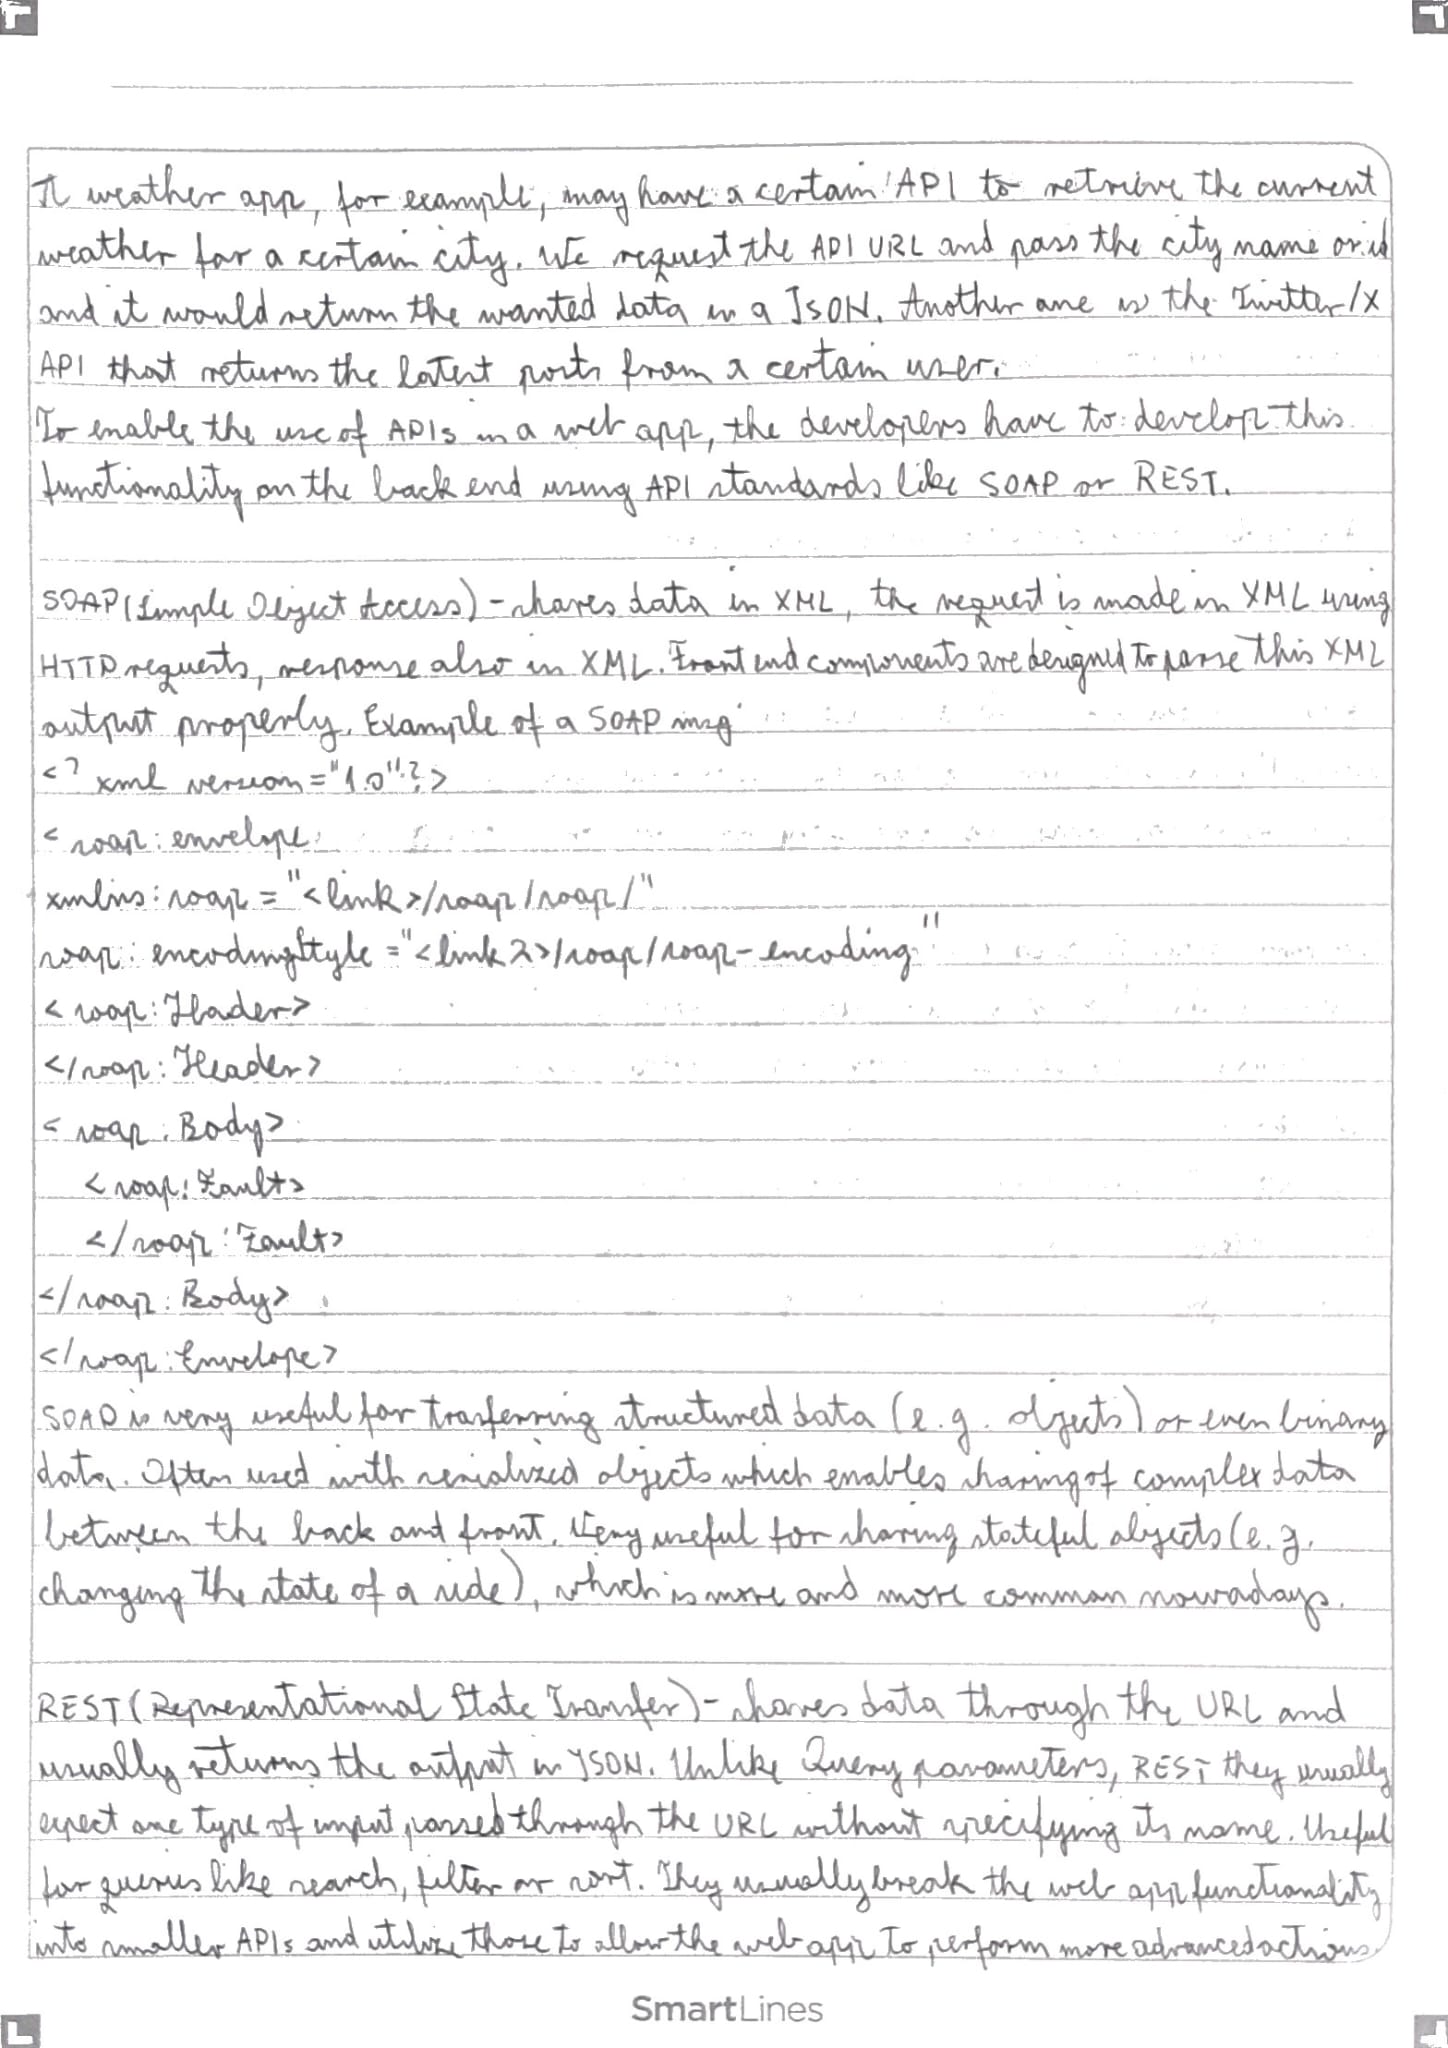 A weather app, for example, may have a certain API to retrieve the current
weather for a certain city. We request the API URL and pass the city name or id
and it would return the wanted data in a JSON. Another one is the Twitter/X
API that returns the latest posts from a certain user.
To enable the use of APIs in a web app, the developers have to develop this
functionality on the back end using API standards like SOAP or REST.
SOAP (Simple Object Access) - shares data in XML, the request is made in XML using
HTTP requests, response also in XML. Front end components are designed to parse this XML
output properly. Example of a SOAP msg
<? xml version="1.0"?>
<soap:envelope
xmlns:soap = "<link>/soap/soap/"
soap:encodingStyle ="<link2>/soap/soap-encoding"
<soap:Header>
</soap:Header>
<soap:Body>
<soap:Fault>
</soap:Fault>
</soap:Body>
</soap:Envelope>
SOAP is very useful for trasferring structured data (e.g. objects) or even binary
data. Often used with serialized objects which enables sharing of complex data
between the back and front. Very useful for sharing stateful objects (e.g.
changing the state of a ride), which is more and more common nowadays.
REST (Representational State Transfer) - shares data through the URL and
usually returns the output in JSON. Unlike Query parameters, REST they usually
expect one type of input passed through the URL without specifying its name. Useful
for queries like search, filter or sort. They usually break the web app functionality
into smaller APIs and utilize those to allow the web app to perform more advanced actions.
SmartLines